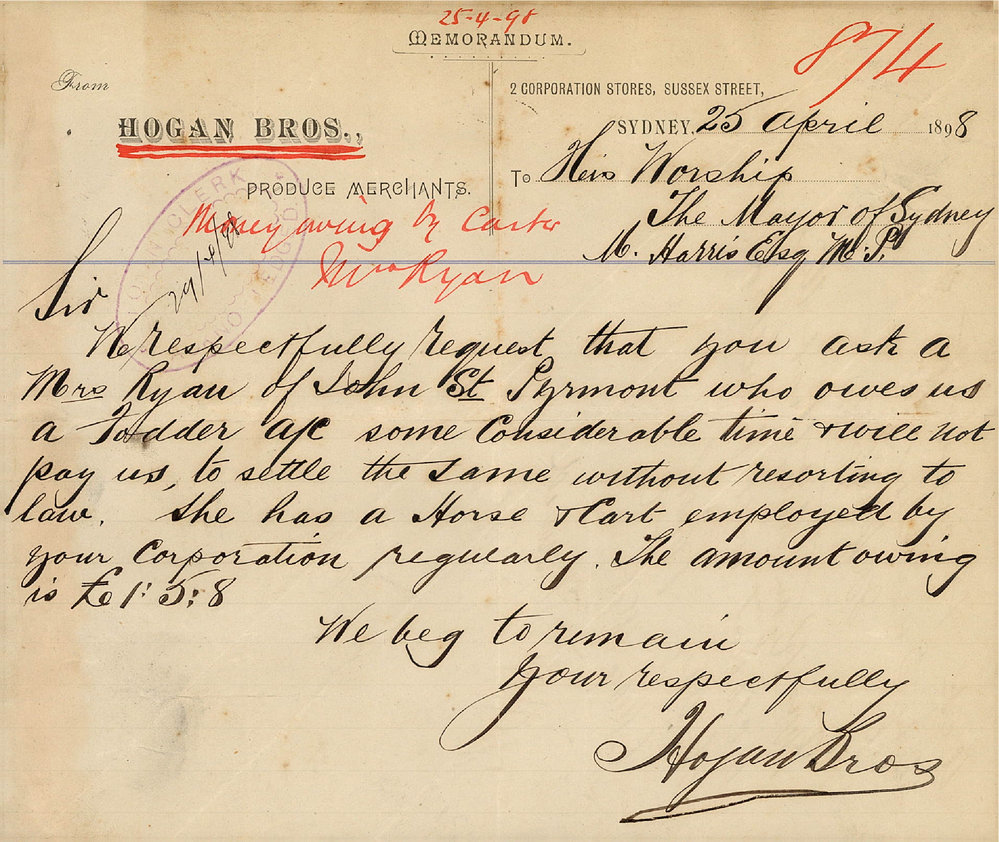 25-4-98
MEMORANDUM.
874
From
2 CORPORATION STORES, SUSSEX STREET,
HOGAN BROS.,
SYDNEY, 25 April 1898
PRODUCE MERCHANTS.
To His Worship
The Mayor of Sydney
M. Harris Esq M.P.
Money owing by Carter
Mrs Ryan
TOWN CLERK
29/4/98
Sir
We respectfully request that you ask a
Mrs Ryan of John St Pyrmont who owes us
a Fodder a/c some Considerable time & will not
pay us, to settle the same without resorting to
law. She has a Horse & Cart employed by
your Corporation regularly. The amount owing
is £1:5:8
We beg to remain
Your respectfully
Hogan Bros